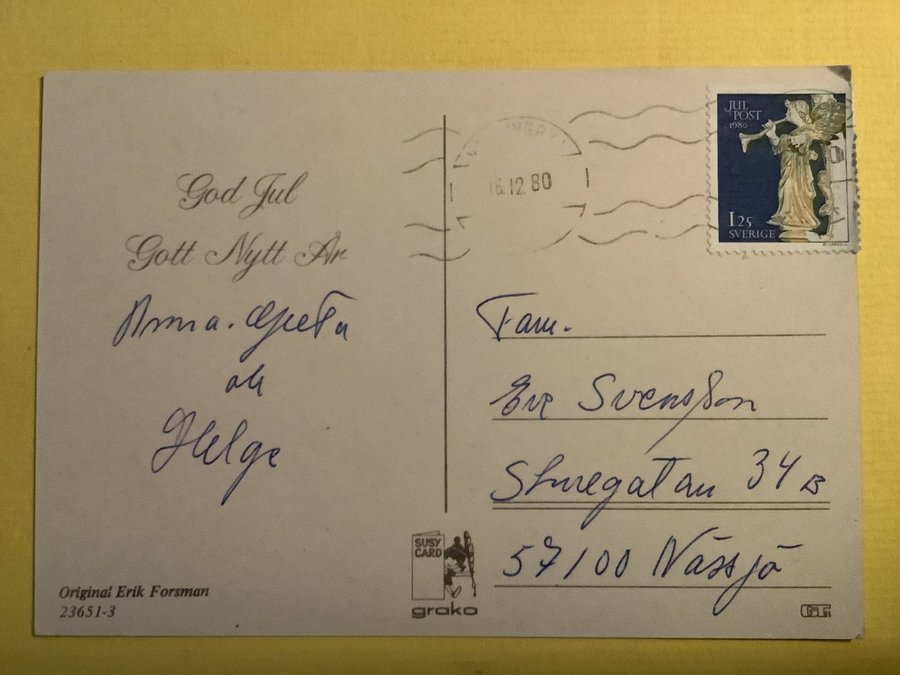 God Jul
Gott Nytt År
Anna-Greta
och
Helge
Original Erik Forsman
23651-3
SUSY
CARD
grako
16.12.80
JUL
POST
1980
1 25
SVERIGE
Fam.
Eve Svensson
Sturegatan 34 B
57100 Nässjö